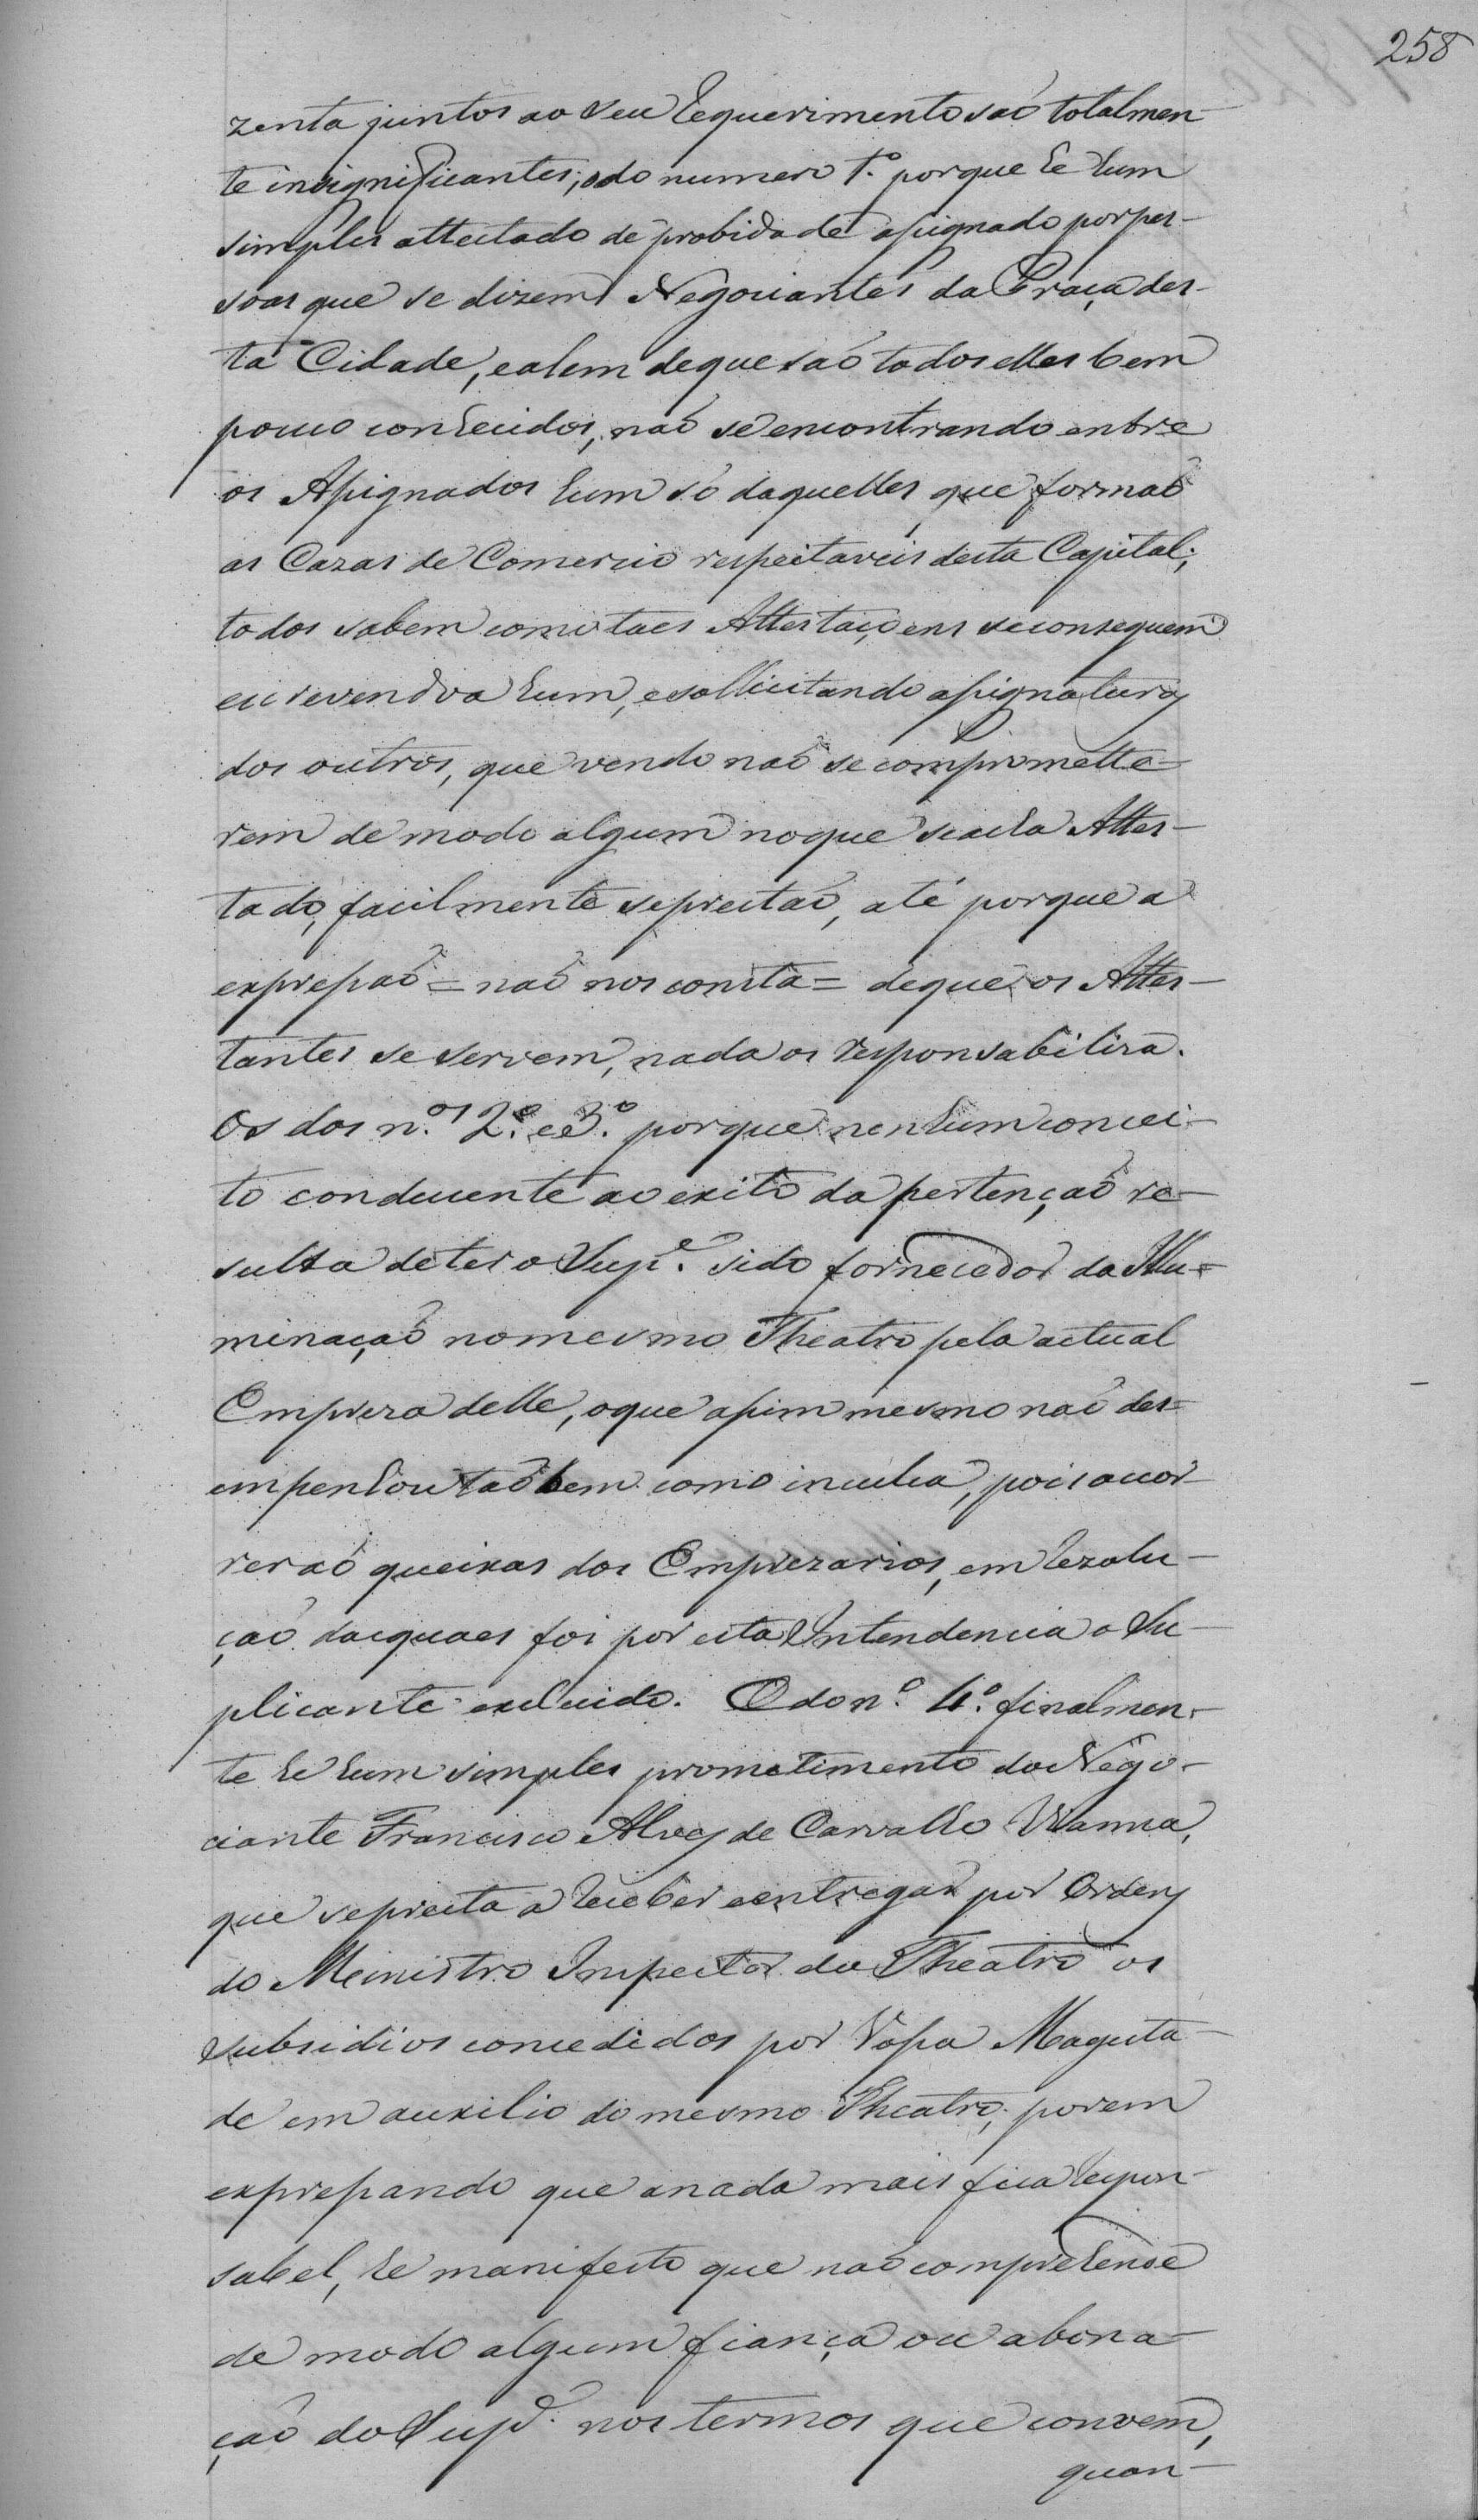 258
zenta juntos ao seu Requerimento saõ totalmen-
te insignificantes; o do numero 1.º porque he hum
simples attestado de probidade assignado por pes-
soas que se dizem Negociantes da Praça des-
ta Cidade, e alem de que saõ todos elles bem
pouco conhecidos, naõ se encontrando entre
os Assignados hum só daquelles que formaõ
as Cazas de Comercio respeitaveis desta Capital;
todos sabem como taes Attestaçoens se conseguem
escrevendo a hum, e sollicitando assignaturas
dos outros, que vendo naõ se compromette-
rem de modo algum no que se acha Attes-
tado, facilmente se prestaõ, até porque a
expressaõ = naõ nos consta = de que os Attes-
tantes se servem, nada os responsabiliza.
Os dos n.os 2.º e 3.º porque nenhum concei-
to conducente ao exito da pertençaõ re-
sulta de ter o Sup.e sido fornecedor da Illu-
minaçaõ no mesmo Theatro pela actual
Empreza delle, o que assim mesmo naõ des-
empenhou taõ bem como inculca, pois ocor-
reraõ queixas dos Emprezarios, em Rezolu-
çaõ dasquaes foi por esta Intendencia o Su-
plicante excluido. O do n.º 4.º finalmen-
te he hum simples prometimento do Nego-
ciante Francisco Alves de Carvalho Vianna,
que se presta a receber e entregar por Ordens
do Ministro Inspector do Theatro os
subsidios concedidos por Vossa Magesta-
de em auxilio do mesmo Theatro; porem
expressando que a nada mais fica respon-
sabel, he manifesto que naõ comprehende
de modo algum fiança ou abona-
çaõ do Sup.e nos termos que convem,
quan-